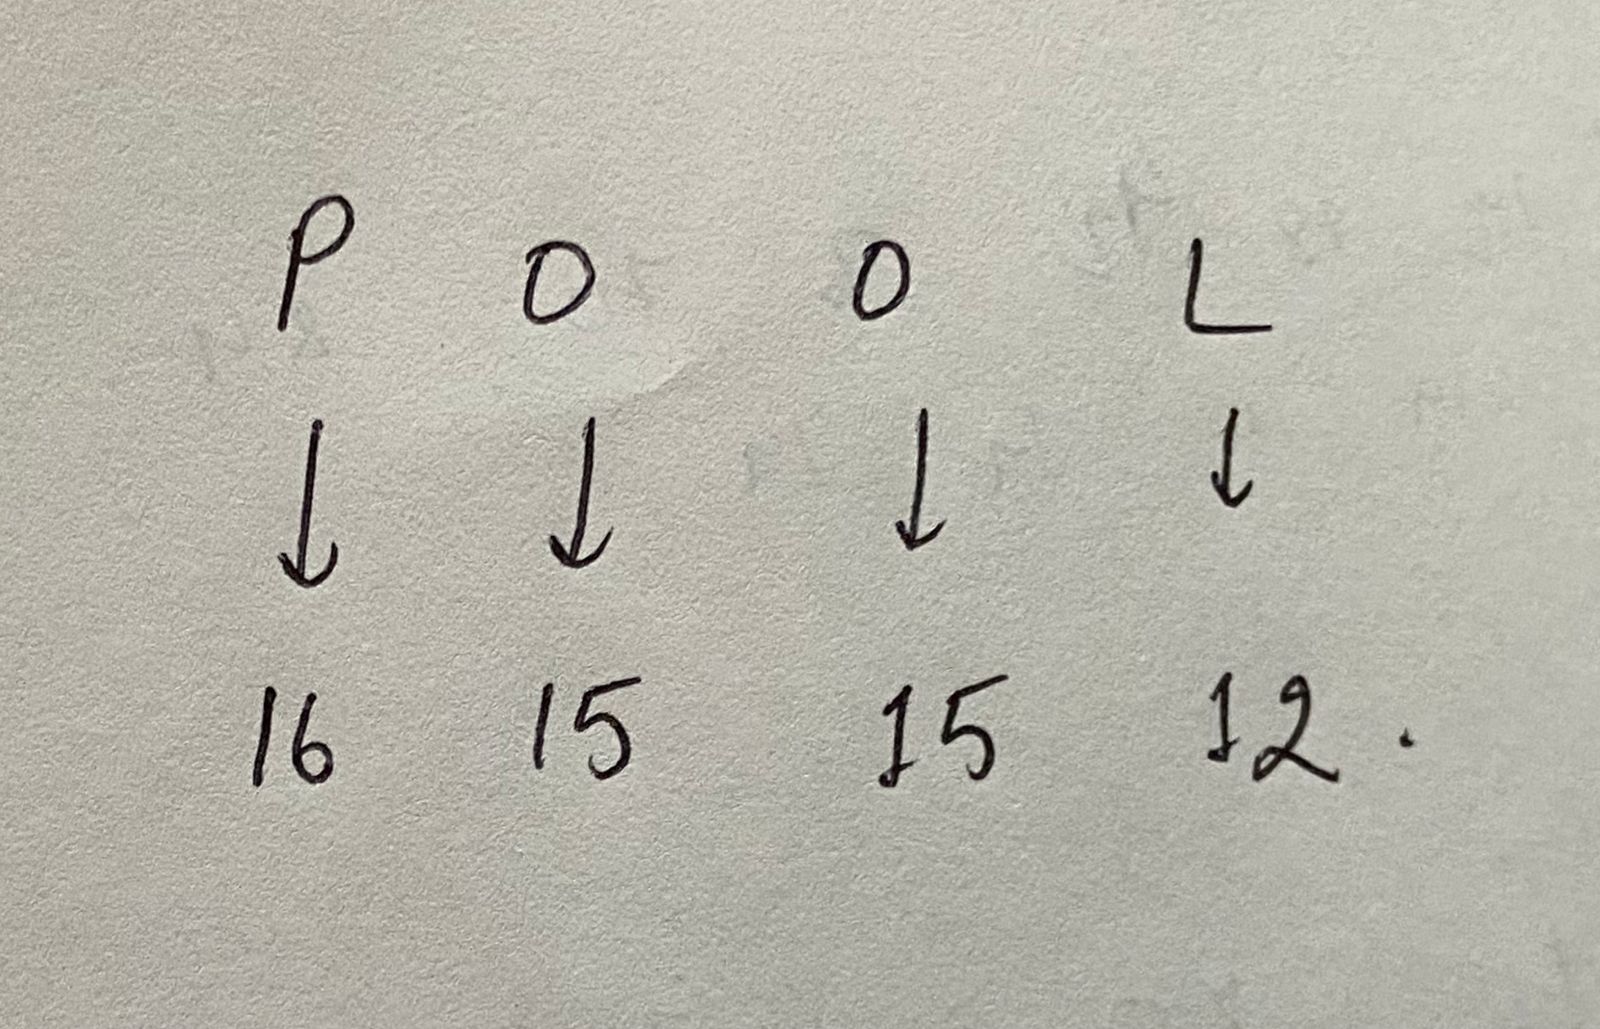 P O O L
↓ ↓ ↓ ↓
16 15 15 12.